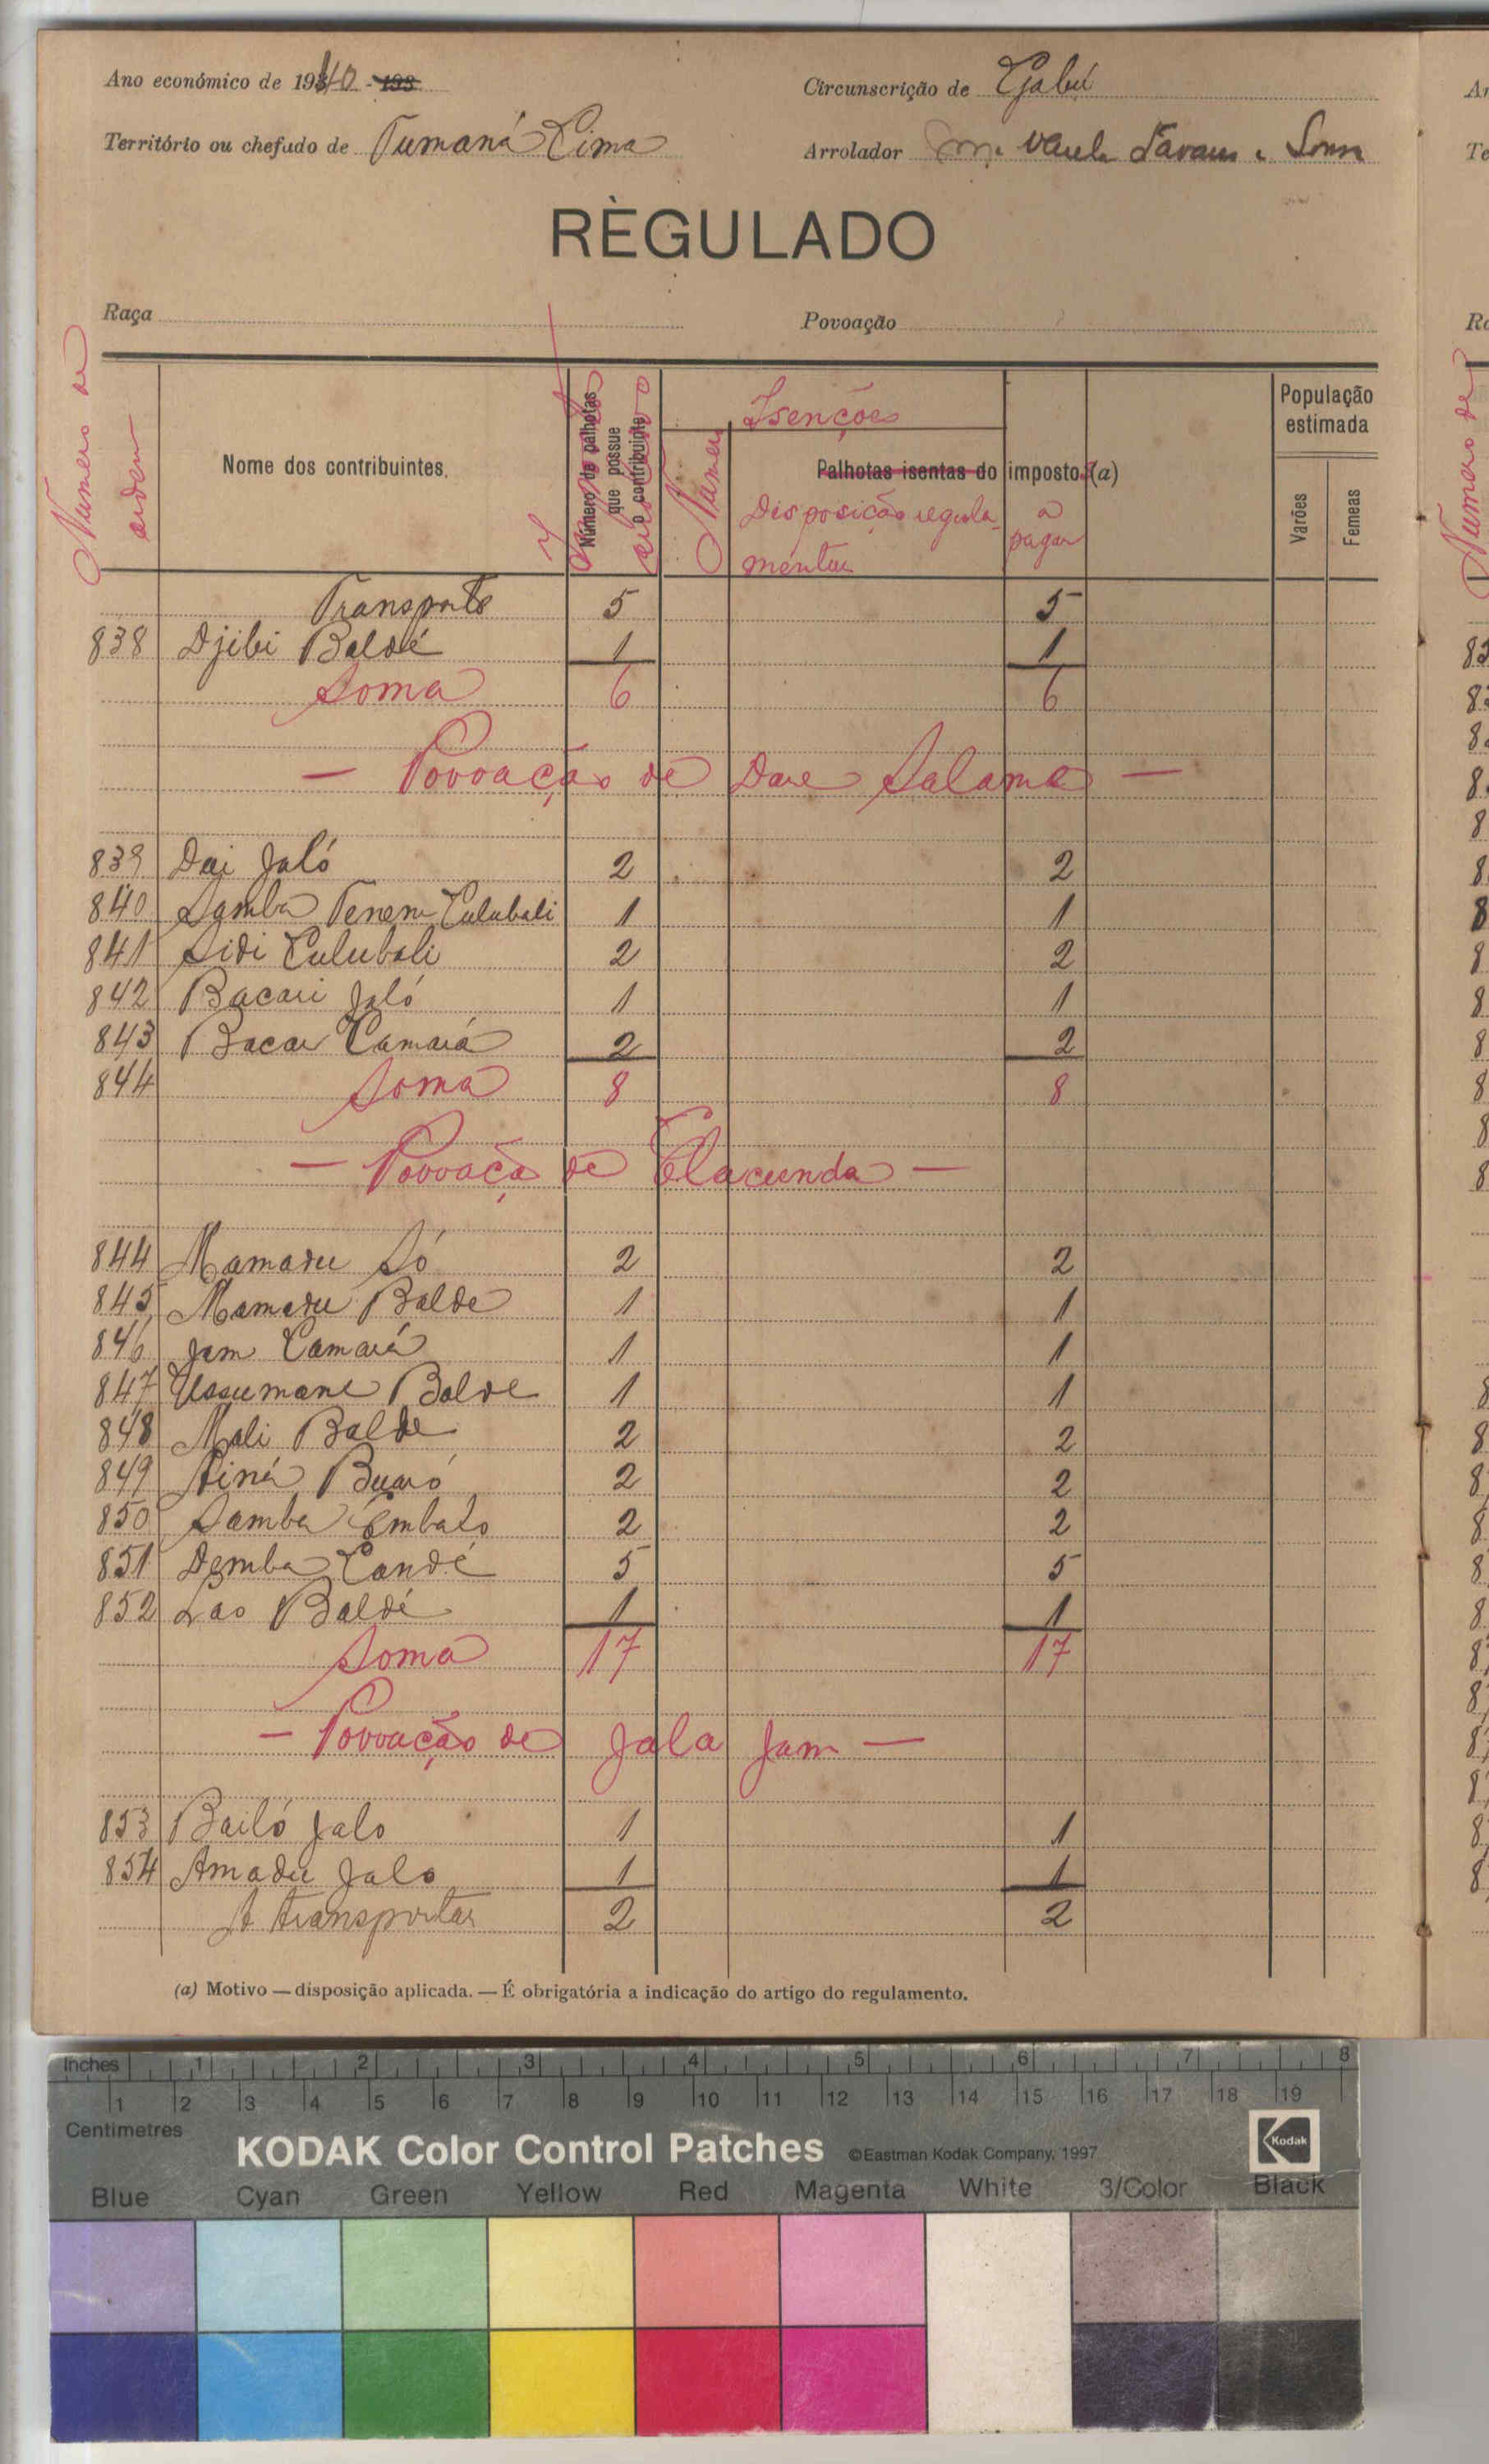 Ano económico de 1940 - 193
Circunscrição de Gabú
Território ou chefado de Tumaná Cima
Arrolador
RÈGULADO
Raça
Povoação
Numero de ordem
Nome dos contribuintes.
Número de palhotas que possue o contribuinte
Isenções
Numero
Palhotas isentas do imposto (a)
Disposição regula-
mentar
a pagar
População estimada
Varões
Femeas
Transporte 5 5
838 Djibi Baldé 1 1
Soma 6 6
— Povoação de Dare Salama —
839 Dai Jaló 2 2
840 Samba Tenem Culubali 1 1
841 Sidi Culubali 2 2
842 Bacari Jaló 1 1
843 Bacar Camará 2 2
844 Soma 8 8
— Povoação de Elacunda —
844 Mamadu Só 2 2
845 Mamadu Balde 1 1
846 Jam Camará 1 1
847 Ussumane Balde 1 1
848 Mali Balde 2 2
849 2 2
850 Samba Embalo 2 2
851 Demba Candé 5 5
852 Lao Baldé 1 1
Soma 17 17
— Povoação de Jala Jam —
853 Bailó Jalo 1 1
854 Amadu Jalo 1 1
A transportar 2 2
(a) Motivo — disposição aplicada. — É obrigatória a indicação do artigo do regulamento.
Inches 1 2 3 4 5 6 7 8
1 2 3 4 5 6 7 8 9 10 11 12 13 14 15 16 17 18 19
Centimetres
KODAK Color Control Patches ©Eastman Kodak Company, 1997 Kodak
Blue Cyan Green Yellow Red Magenta White 3/Color Black